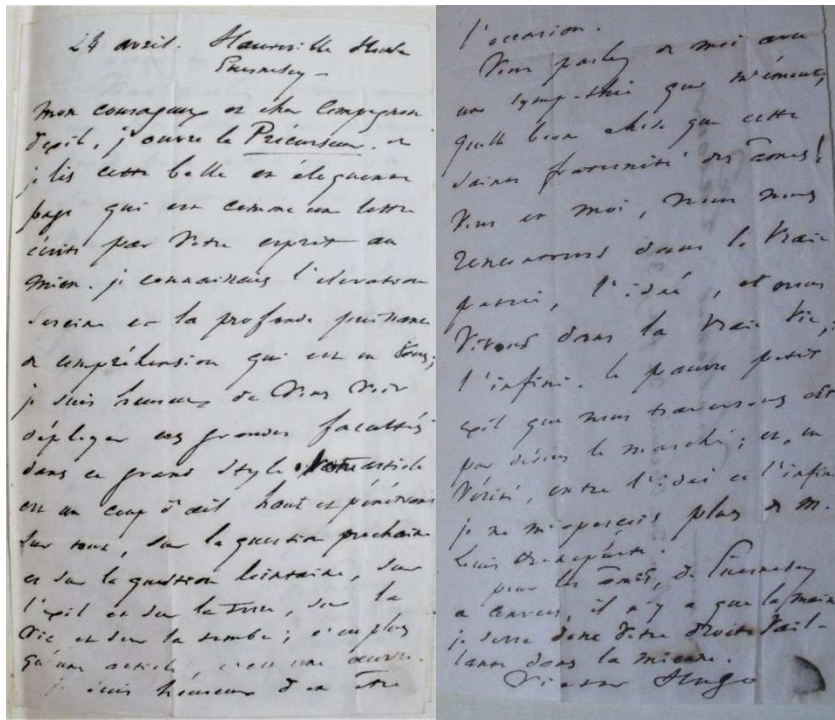 24 avril. Hauteville House
Guernesey –
mon courageux et cher Compagnon
d'exil, j'ouvre le Précurseur. et
je lis cette belle et éloquente
page qui est comme une lettre
écrite par votre esprit au
mien. je connaissais l'élévation
sereine et la profonde puissance
de compréhension qui est en vous;
je suis heureux de vous voir
déployer ces grandes facultés
dans ce grand style. Votre article
est un coup d'œil haut et pénétrant
sur tout, sur la question prochaine
et sur la question lointaine, sur
l'exil et sur la terre, sur la
vie et sur la tombe; c'est plus
qu'un article, c'est une œuvre.
je suis heureux d'en être
l'occasion.
Vous parlez de moi avec
une sympathie qui m'émeut;
quelle belle chose que cette
sainte fraternité des âmes!
Vous et moi, nous nous
rencontrons dans la vraie
patrie, l'idée, et nous
vivons dans la vraie vie,
l'infini. le pauvre petit
exil que nous traversons est
par dessus le marché; et, en
vérité, entre l'idée et l'infini
je ne m'aperçois plus de M.
Louis Bonaparte.
pour les âmes, de Guernesey
a il n'y a que la main
je serre donc votre droite vail-
lante dans la mienne.
Victor Hugo